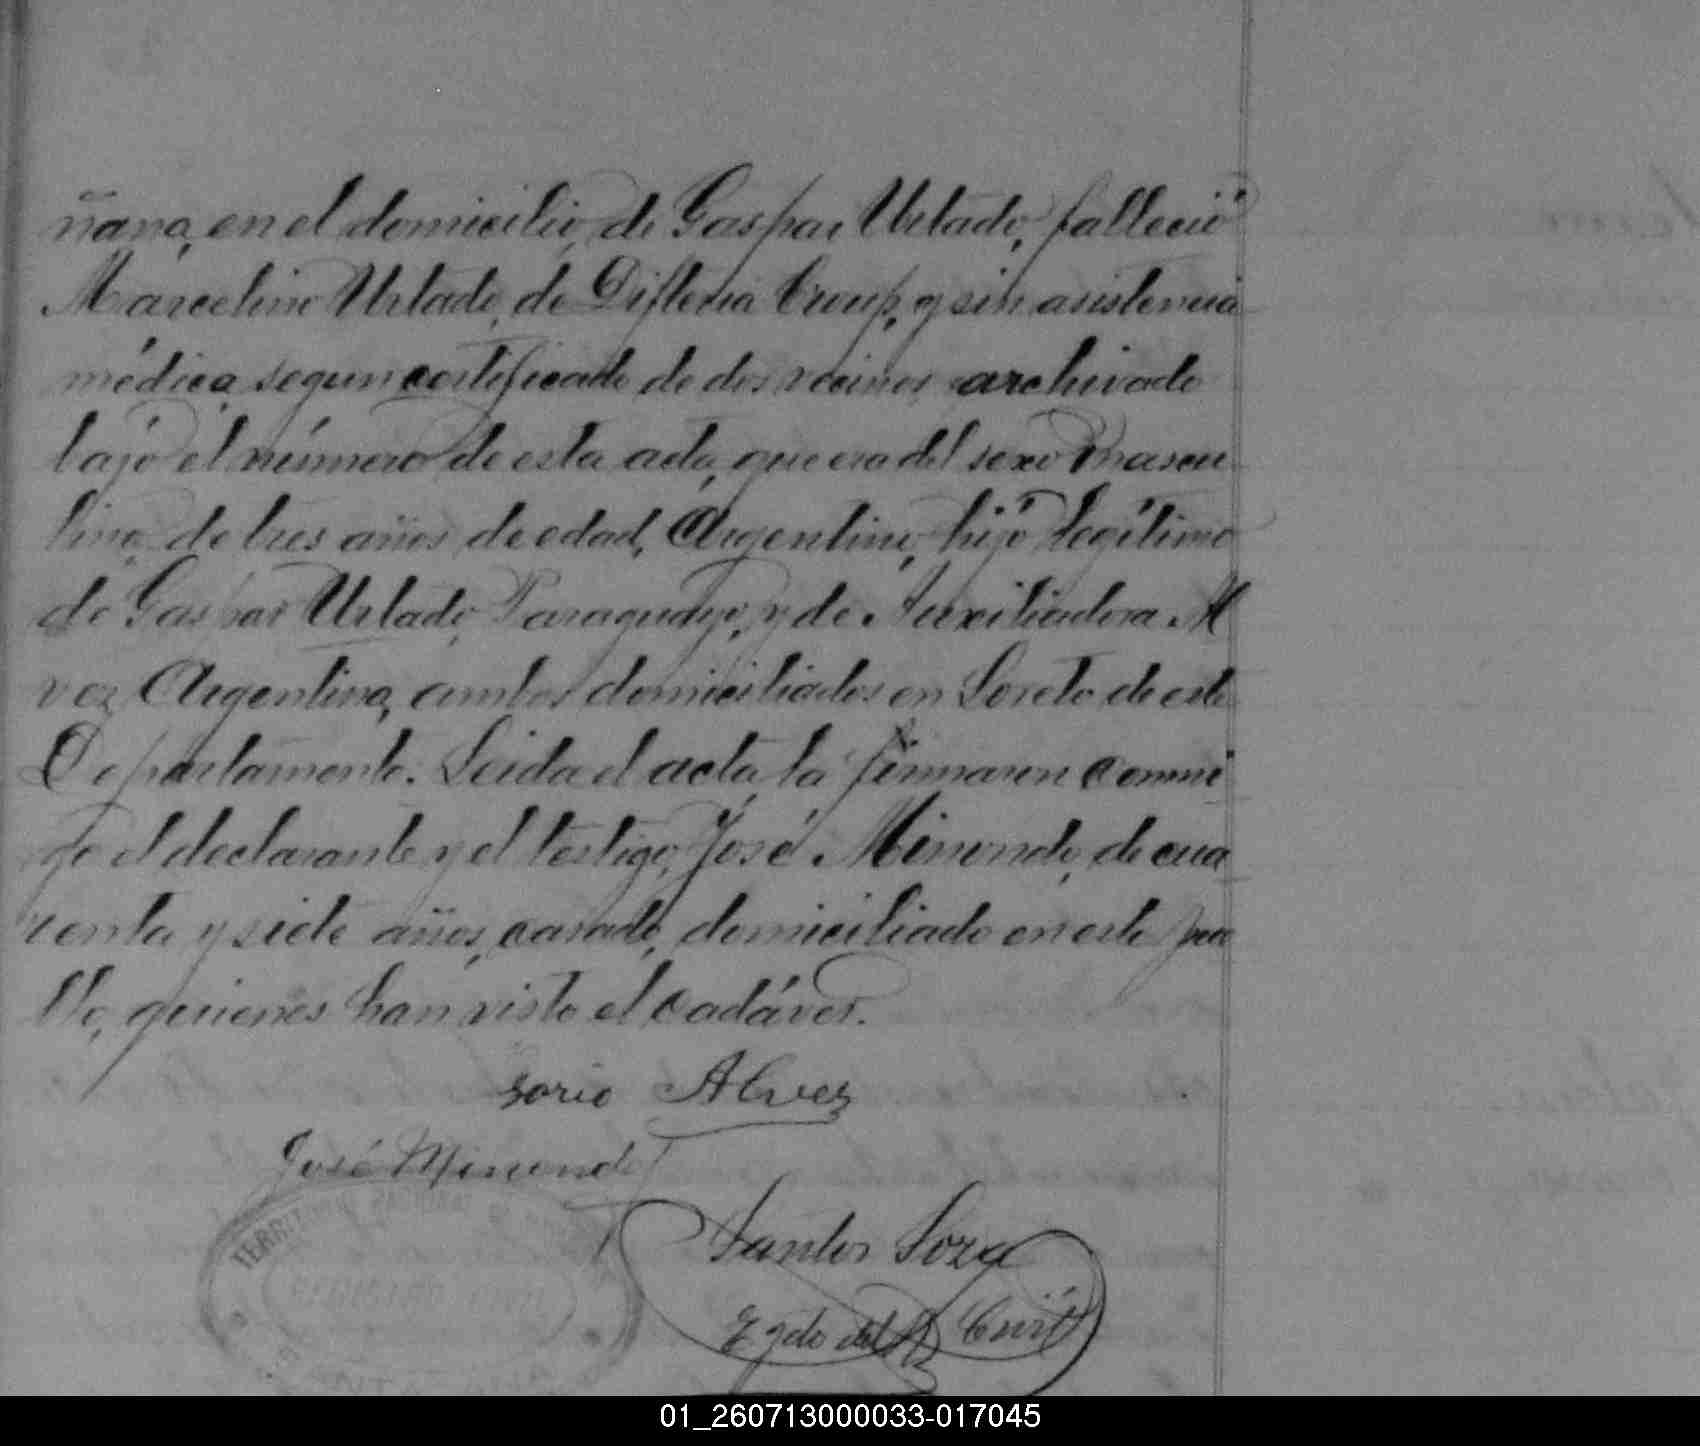 ñana, en el domicilio, de Gaspar Urtado, falleció
Marcelino Urtado, de Difteria Croup, y sin asistencia
médica segun certificado de dos vecinos archivado
bajo el número de esta acta, que era del sexo mascu
lino, de tres años de edad, Argentino, hijo legítimo
de Gaspar Urtado, Paraguayo, y de Auxiliadora Al
vez, Argentina, ambos domiciliados en Loreto de este
Departamento. Leida el acta, la firmaron conmi
go el declarante y el testigo, José Minondo, de cua
renta y siete años, casado, domiciliado en este pue
blo, quienes han visto el cadáver.
Alvez
José Minondo
Santos Soza
Egdo del R. Civil
TERRITORIO NACIONAL
REGISTRO CIVIL
01_260713000033-017045